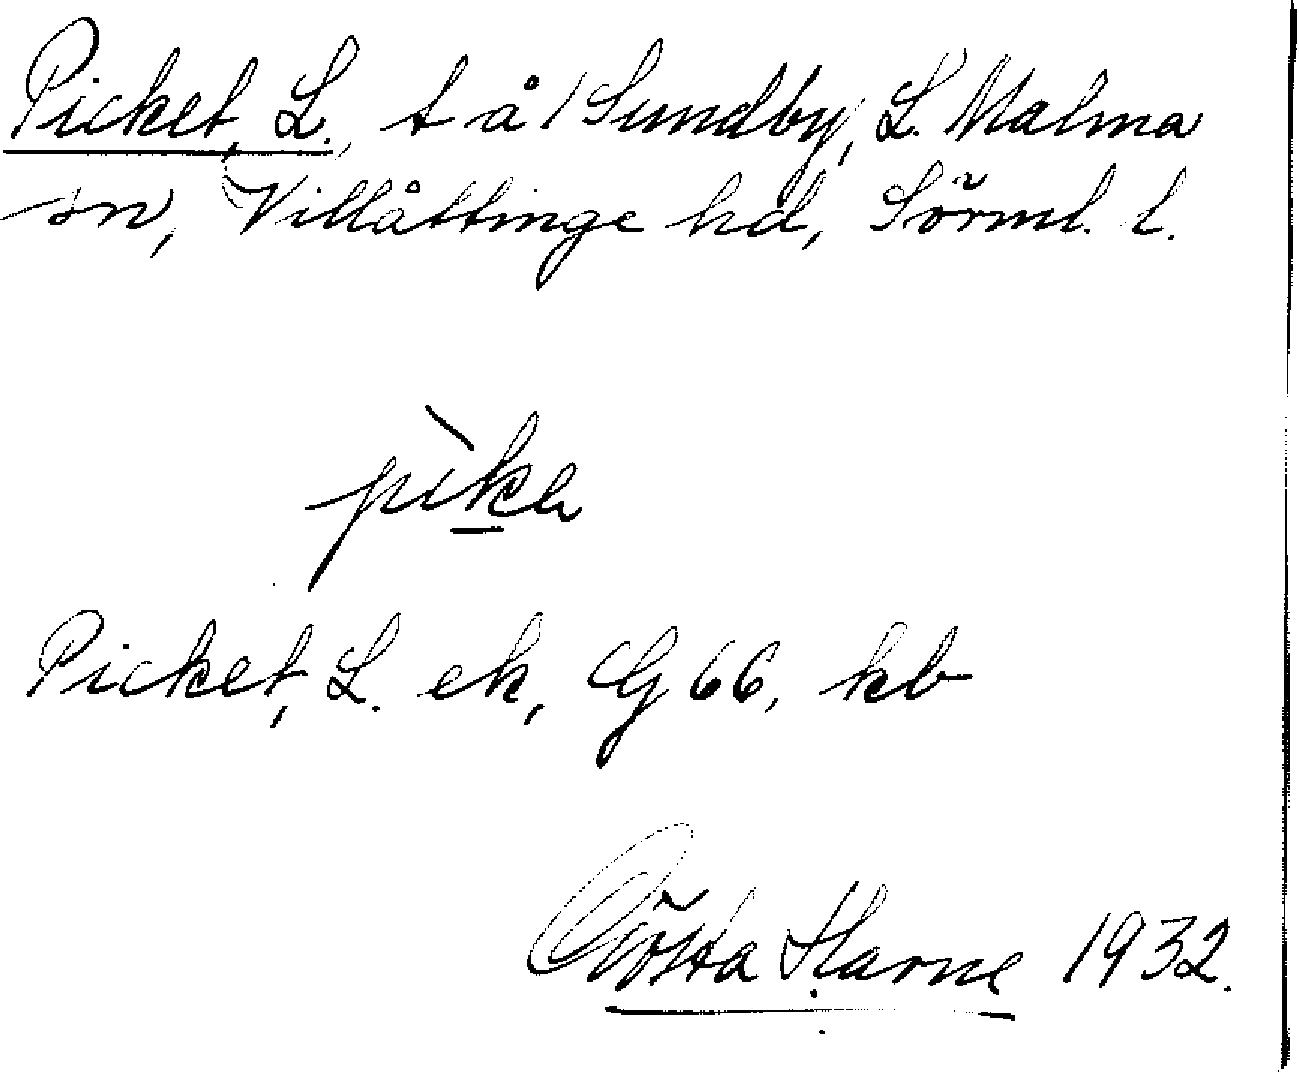 Picket, L., t å/ Sundby, L. Malma
sn, Villåttinge hd, Sörml. l.
pìkə
Picket, L. ek, G 66, kb
Gösta Harne 1932.